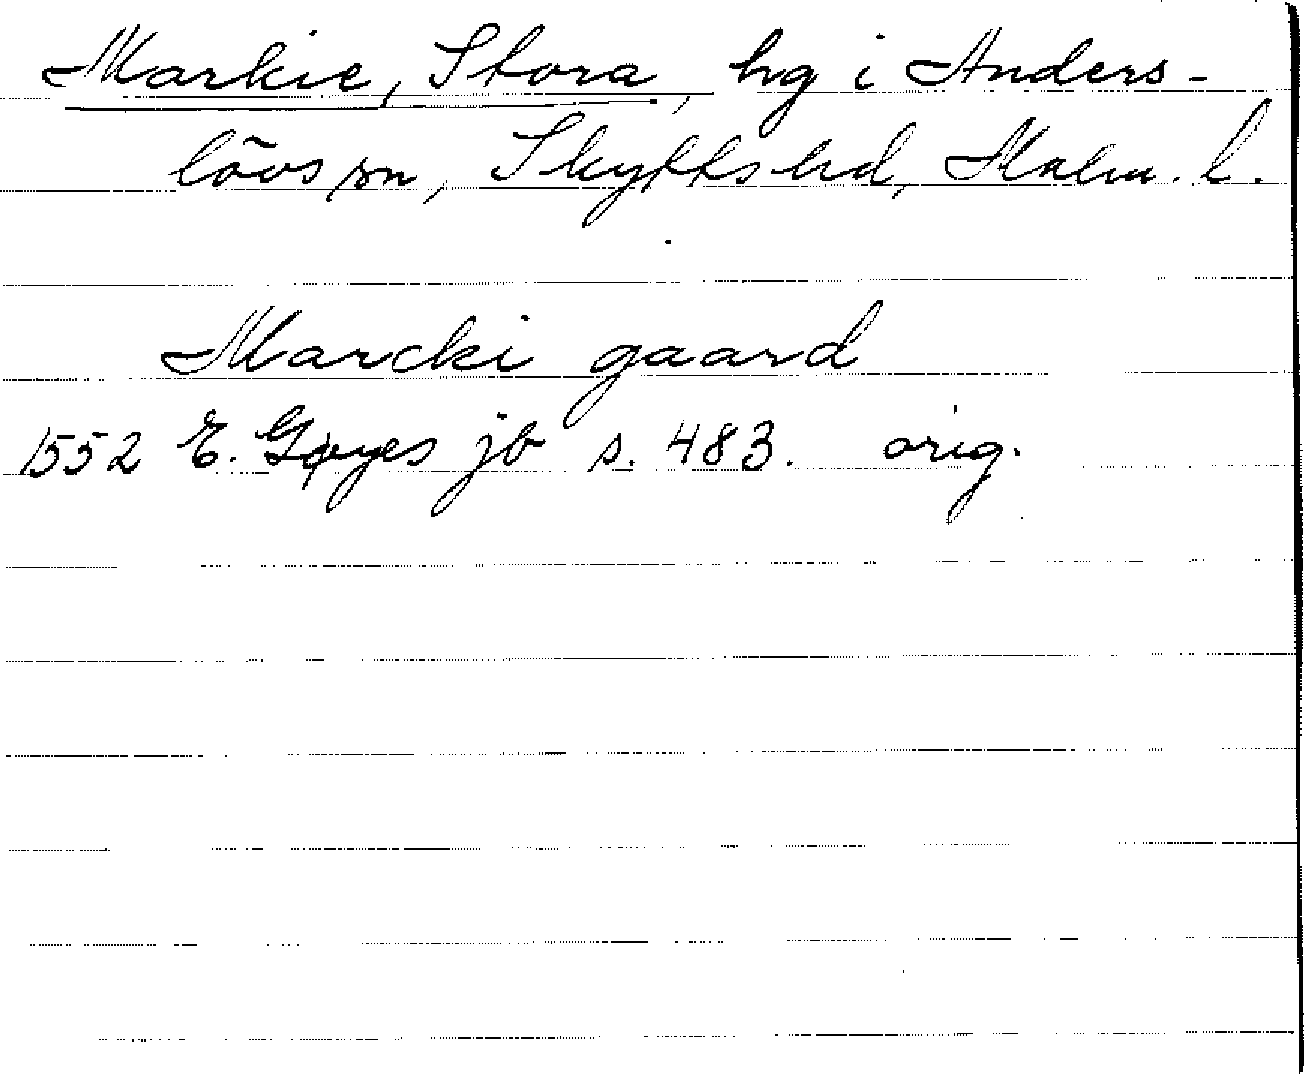 Markie, Stora, hg i Anders-
lövs sn, Skytts hd, Malm. l.
Marcki gaard
1552 E. Gøyes jb s. 483. orig.